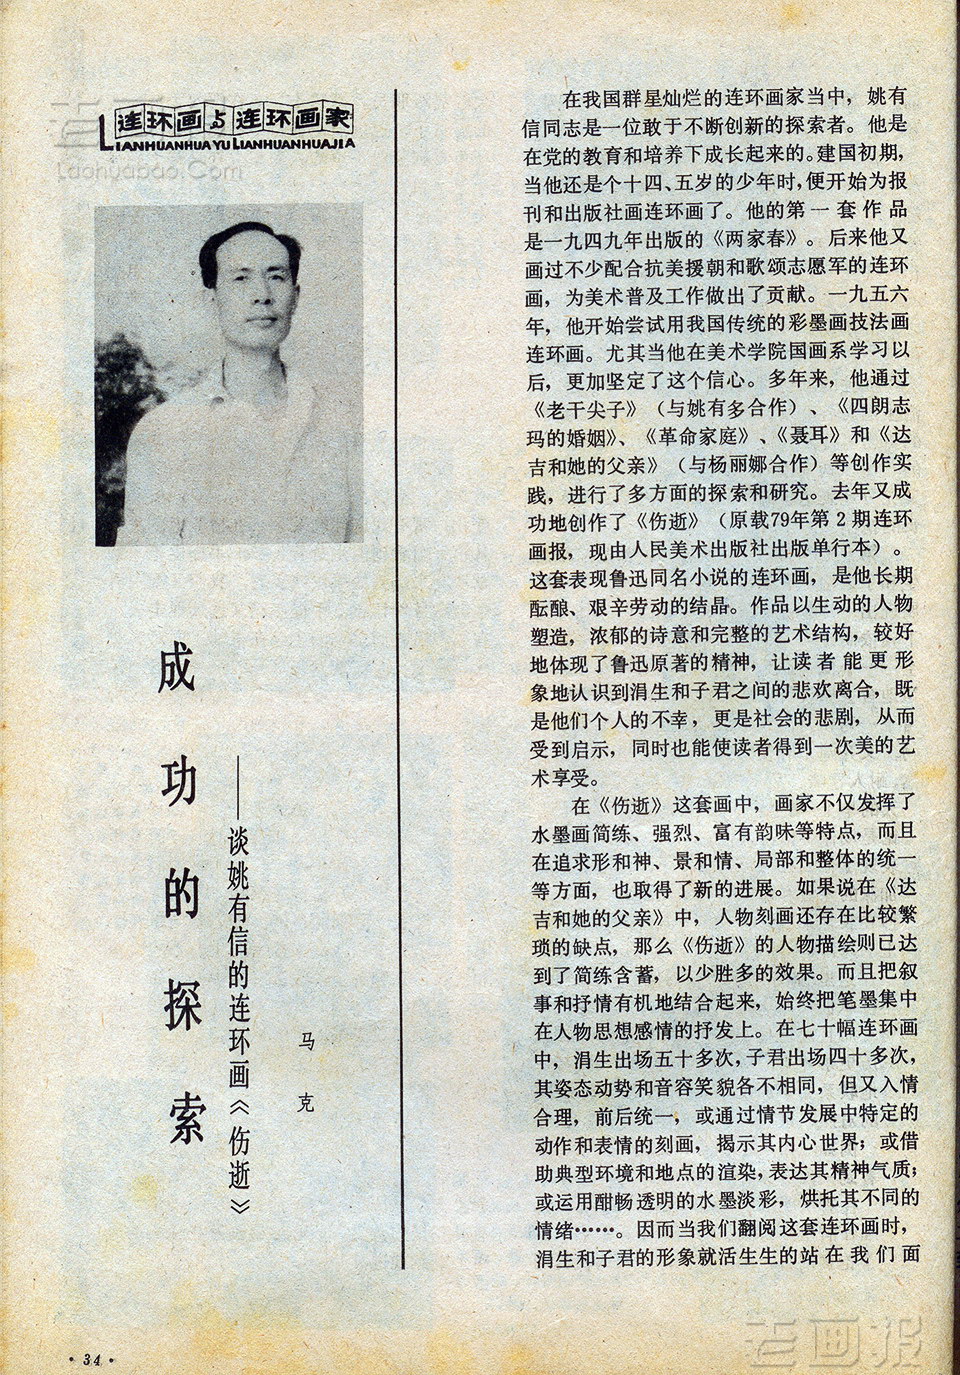 连环画与连环画家
LIANHUANHUA YU LIANHUANHUAJIA
老画报
Laohuabao.Com
成功的探索
——谈姚有信的连环画《伤逝》
马克
在我国群星灿烂的连环画家当中，姚有
信同志是一位敢于不断创新的探索者。他是
在党的教育和培养下成长起来的。建国初期，
当他还是个十四、五岁的少年时，便开始为报
刊和出版社画连环画了。他的第一套作品
是一九四九年出版的《两家春》。后来他又
画过不少配合抗美援朝和歌颂志愿军的连环
画，为美术普及工作做出了贡献。一九五六
年，他开始尝试用我国传统的彩墨画技法画
连环画。尤其当他在美术学院国画系学习以
后，更加坚定了这个信心。多年来，他通过
《老干尖子》（与姚有多合作）、《四朗志
玛的婚姻》、《革命家庭》、《聂耳》和《达
吉和她的父亲》（与杨丽娜合作）等创作实
践，进行了多方面的探索和研究。去年又成
功地创作了《伤逝》（原载79年第2期连环
画报，现由人民美术出版社出版单行本）。
这套表现鲁迅同名小说的连环画，是他长期
酝酿、艰辛劳动的结晶。作品以生动的人物
塑造，浓郁的诗意和完整的艺术结构，较好
地体现了鲁迅原著的精神，让读者能更形
象地认识到涓生和子君之间的悲欢离合，既
是他们个人的不幸，更是社会的悲剧，从而
受到启示，同时也能使读者得到一次美的艺
术享受。
在《伤逝》这套画中，画家不仅发挥了
水墨画简练、强烈、富有韵味等特点，而且
在追求形和神、景和情、局部和整体的统一
等方面，也取得了新的进展。如果说在《达
吉和她的父亲》中，人物刻画还存在比较繁
琐的缺点，那么《伤逝》的人物描绘则已达
到了简练含蓄，以少胜多的效果。而且把叙
事和抒情有机地结合起来，始终把笔墨集中
在人物思想感情的抒发上。在七十幅连环画
中，涓生出场五十多次，子君出场四十多次，
其姿态动势和音容笑貌各不相同，但又入情
合理，前后统一，或通过情节发展中特定的
动作和表情的刻画，揭示其内心世界；或借
助典型环境和地点的渲染，表达其精神气质；
或运用酣畅透明的水墨淡彩，烘托其不同的
情绪……。因而当我们翻阅这套连环画时，
涓生和子君的形象就活生生的站在我们面
·34·
老画报